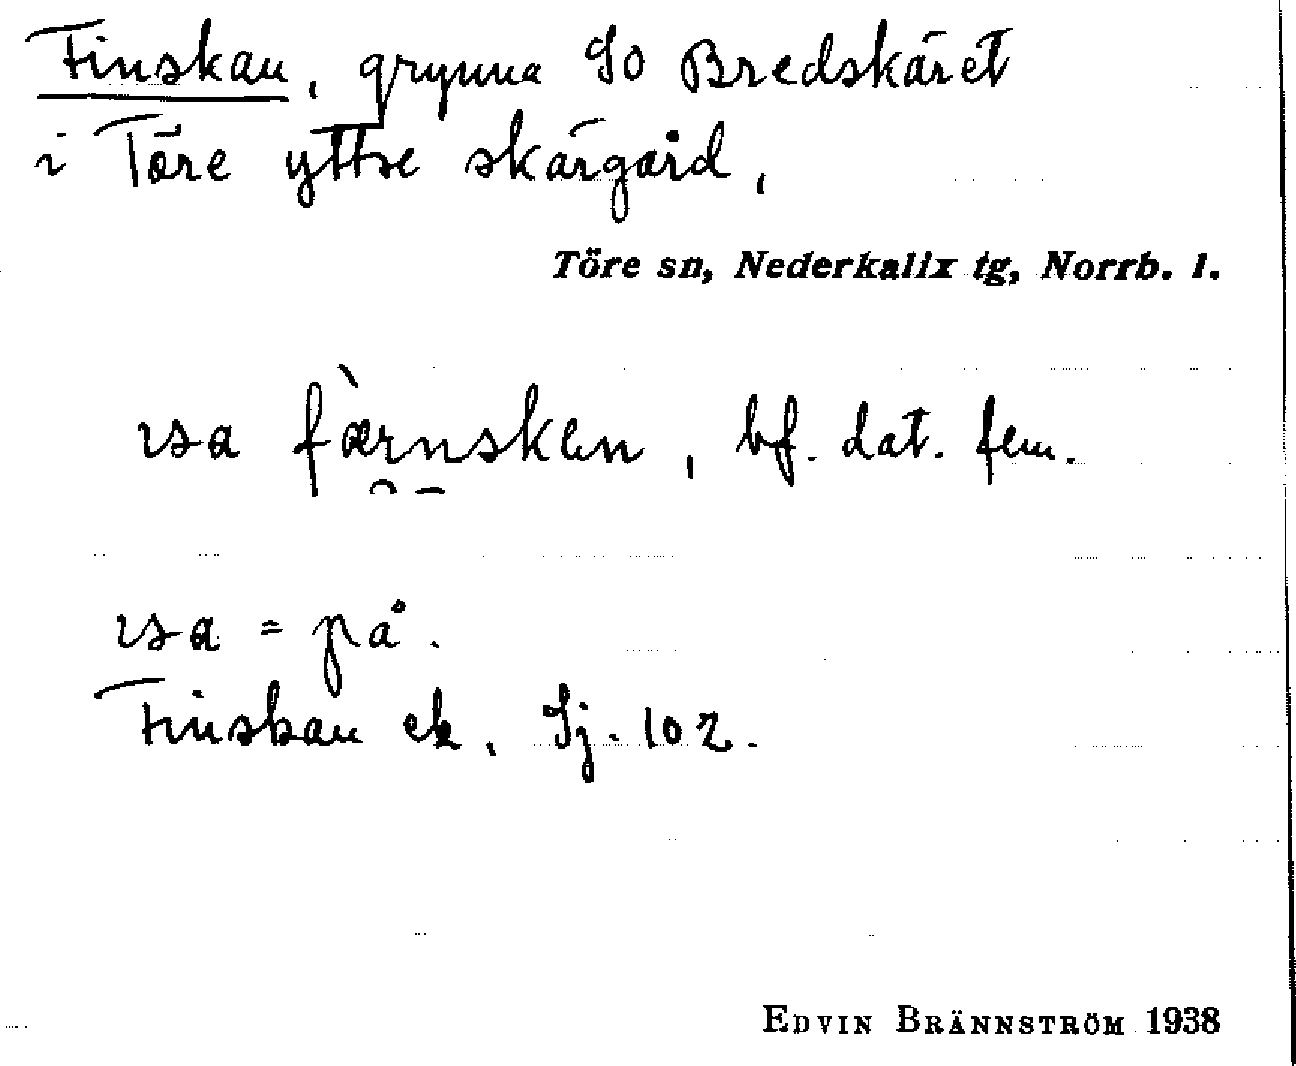 Finskan, grynna So Bredskäret
i Töre yttre skärgård,
Töre sn, Nederkalix tg, Norrb. l.
färnsken, bf. dat. fem.
= på.
Finskan ek. Sj. 102.
EDVIN BRÄNNSTRÖM 1938